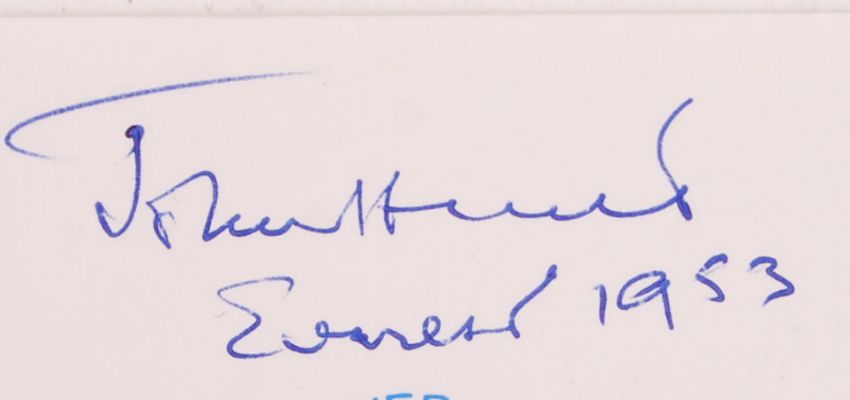 John Hunt
Everest 1953